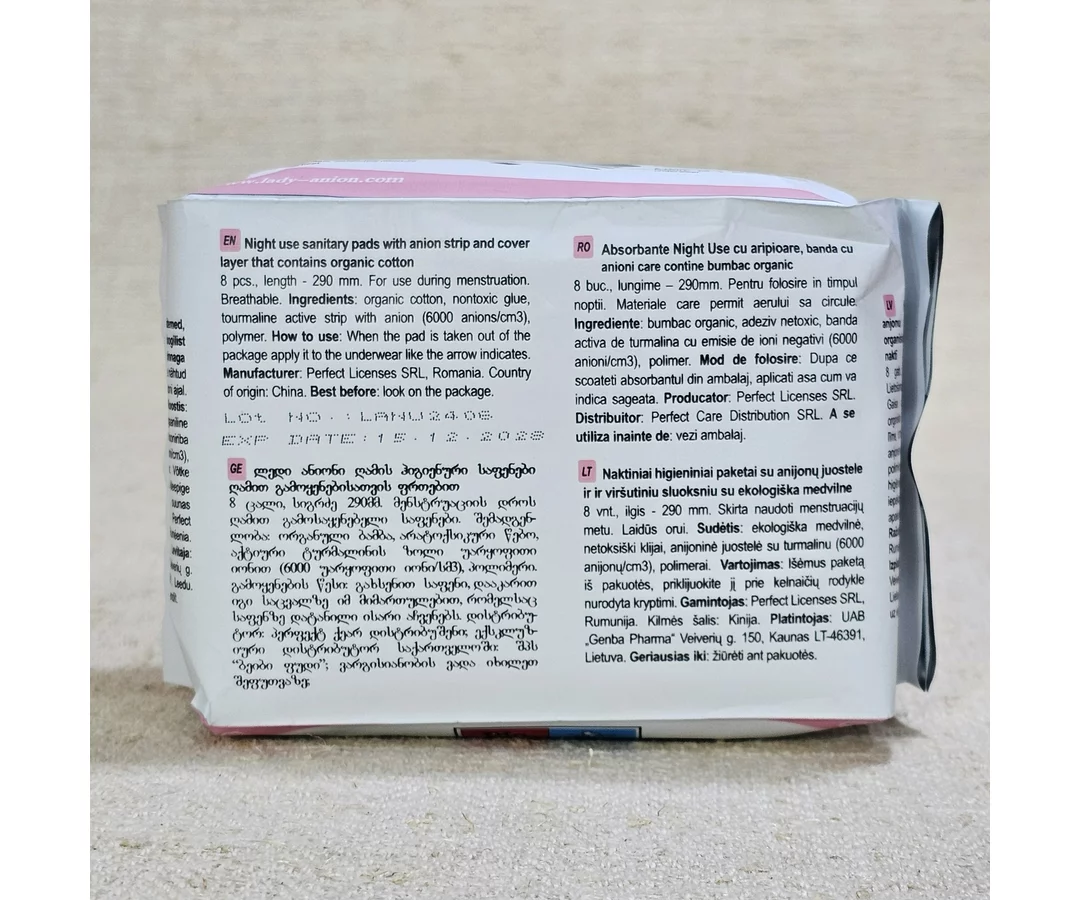 www.lady-anion.com
EN Night use sanitary pads with anion strip and cover
layer that contains organic cotton
8 pcs., length - 290 mm. For use during menstruation.
Breathable. Ingredients: organic cotton, nontoxic glue,
tourmaline active strip with anion (6000 anions/cm3),
polymer. How to use: When the pad is taken out of the
package apply it to the underwear like the arrow indicates.
Manufacturer: Perfect Licenses SRL, Romania. Country
of origin: China. Best before: look on the package.
LOt NO.: LANU2408
EXP DATE: 15.12.2028
GE ლედი ანიონი ღამის ჰიგიენური საფენები
ღამით გამოყენებისათვის ფრთებით
8 ცალი, სიგრძე 290მმ. მენსტრუაციის დროს
ღამით გამოსაყენებელი საფენები. შემადგენ-
ლობა: ორგანული ბამბა, არატოქსიკური წებო,
აქტიური ტურმალინის ზოლი უარყოფითი
იონით (6000 უარყოფითი იონი/სმ3), პოლიმერი.
გამოყენების წესი: გახსენით საფენი, დააკარით
იგი საცვალზე იმ მიმართულებით, რომელსაც
საფენზე დატანილი ისარი აჩვენებს. დისტრიბუ-
ტორ: პერფექტ ქეარ დისტრიბუშენი; ექსკლუზ-
იური დისტრიბუტორ საქართველოში: შპს
“ბეიბი ფუდი”; ვარგისიანობის ვადა იხილეთ
შეფუთვაზე;
RO Absorbante Night Use cu aripioare, banda cu
anioni care contine bumbac organic
8 buc., lungime – 290mm. Pentru folosire in timpul
noptii. Materiale care permit aerului sa circule.
Ingrediente: bumbac organic, adeziv netoxic, banda
activa de turmalina cu emisie de ioni negativi (6000
anioni/cm3), polimer. Mod de folosire: Dupa ce
scoateti absorbantul din ambalaj, aplicati asa cum va
indica sageata. Producator: Perfect Licenses SRL.
Distribuitor: Perfect Care Distribution SRL. A se
utiliza inainte de: vezi ambalaj.
LT Naktiniai higieniniai paketai su anijonų juostele
ir ir viršutiniu sluoksniu su ekologiška medvilne
8 vnt., ilgis - 290 mm. Skirta naudoti menstruacijų
metu. Laidūs orui. Sudėtis: ekologiška medvilnė,
netoksiški klijai, anijoninė juostelė su turmalinu (6000
anijonų/cm3), polimerai. Vartojimas: Išėmus paketą
iš pakuotės, priklijuokite jį prie kelnaičių rodykle
nurodyta kryptimi. Gamintojas: Perfect Licenses SRL,
Rumunija. Kilmės šalis: Kinija. Platintojas: UAB
„Genba Pharma“ Veiverių g. 150, Kaunas LT-46391,
Lietuva. Geriausias iki: žiūrėti ant pakuotės.
LV